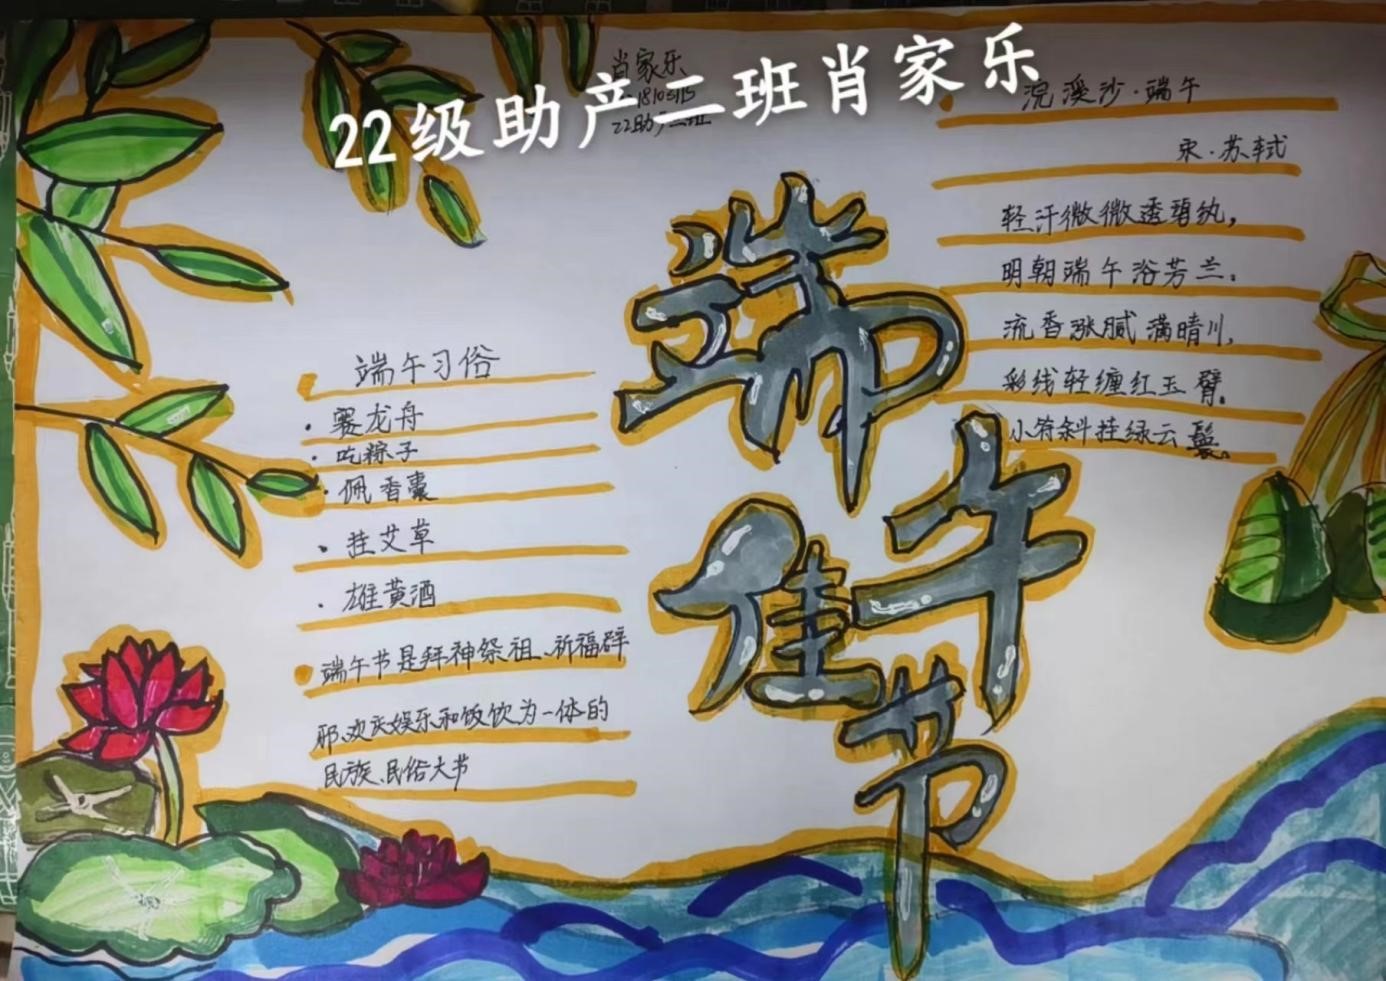 22级助产二班肖家乐
肖家乐
22助产二班
浣溪沙·端午
宋·苏轼
轻汗微微透碧纨，
明朝端午浴芳兰。
流香涨腻满晴川，
彩线轻缠红玉臂。
小符斜挂绿云鬟。
端午
佳节
端午习俗
·赛龙舟
·吃粽子
·佩香囊
·挂艾草
·雄黄酒
端午节是拜神祭祖、祈福辟
邪、欢庆娱乐和饭饮为一体的
民族、民俗大节